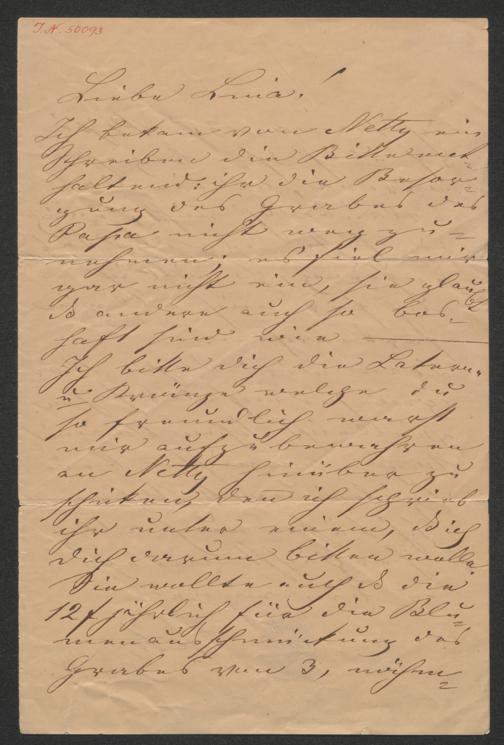 J. N. 50093
Liebe Lina!
Ich bekam von Netty ein
Schreiben die Bitte ent-
haltend: ihr die Besor-
gung des Grabes des
Papa nicht weg zu=
nehmen; es fiel mir
gar nicht ein, sie glaubt
andere auch so bos-
haft sind wie
Ich bitte dich die Latern
u Kränze welche du
so freundlich warst
mir aufzubewahren
an Netty hinüber zu
schicken, den ich schrieb
ihr unter einem, ich
dich darum bitten wolle.
Sie wollte auch die
12 f jährlich für die Blu=
menausschmückung des
Grabes von 3,